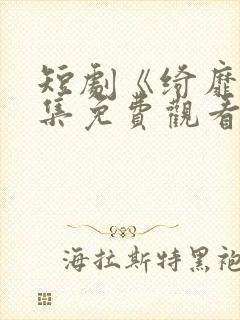 短劇《綺靡
集免費觀看
海拉斯特黑袍